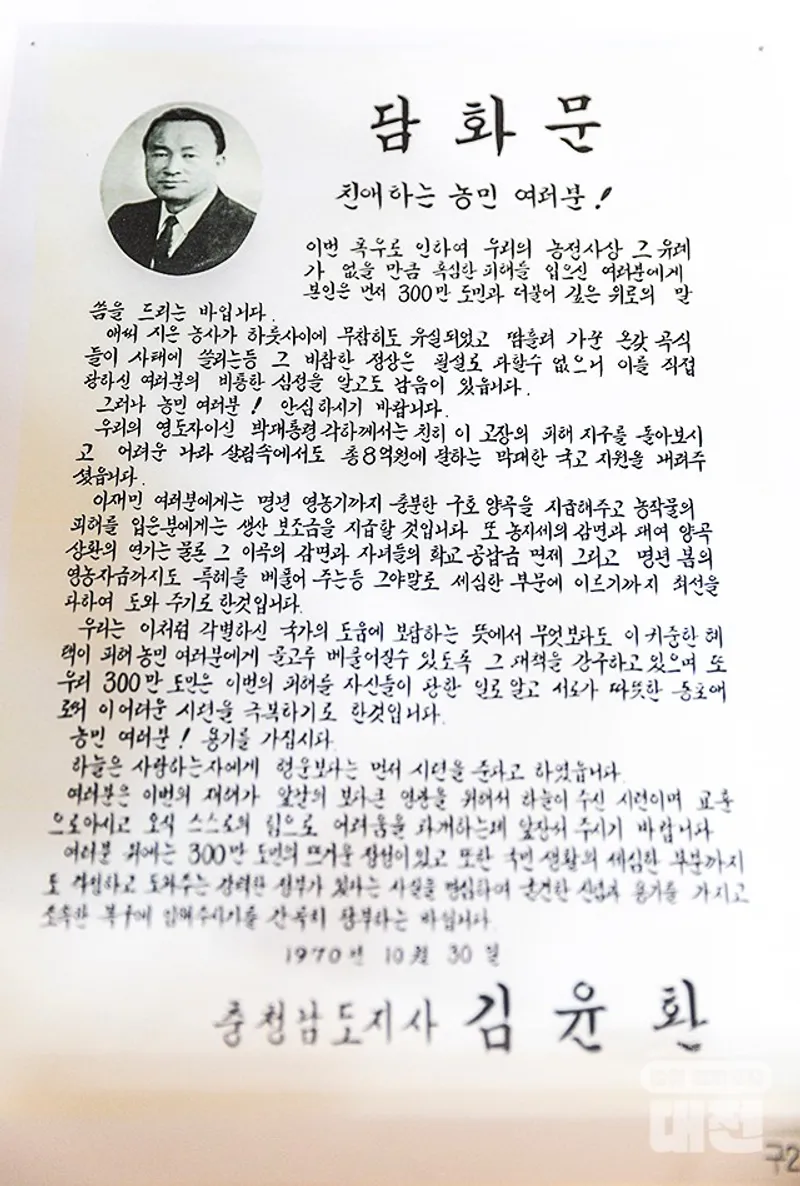 담화문
친애하는 농민 여러분!
이번 폭우로 인하여 우리의 농정사상 그 유례
가 없을 만큼 혹심한 피해를 입으신 여러분에게
본인은 먼저 300만 도민과 더불어 깊은 위로의 말
씀을 드리는 바입니다.
애써 지은 농사가 하룻사이에 무참히도 유실되었고 땀흘려 가꾼 온갖 곡식
들이 사태에 쓸리는등 그 비참한 정상은 필설로 다할수 없으니 이를 직접
당하신 여러분의 비통한 심정을 알고도 남음이 있읍니다.
그러나 농민 여러분! 안심하시기 바랍니다.
우리의 영도자이신 박대통령각하께서는 친히 이 고장의 피해 지구를 돌아보시
고 어려운 나라 살림속에서도 총8억원에 달하는 막대한 국고 지원을 내려주
셨읍니다.
이재민 여러분에게는 명년 영농기까지 충분한 구호 양곡을 지급해주고 농작물의
피해를 입은분에게는 생산 보조금을 지급할 것입니다 또 농지세의 감면과 대여 양곡
상환의 연기는 물론 그 이곡의 감면과 자녀들의 학교 공납금 면제 그리고 명년 봄의
영농자금까지도 특혜를 베풀어 주는등 그야말로 세심한 부문에 이르기까지 최선을
다하여 도와 주기로 한것입니다.
우리는 이처럼 각별하신 국가의 도움에 보답하는 뜻에서 무엇보다도 이 귀중한 혜
택이 피해농민 여러분에게 골고루 베풀어질수 있도록 그 대책을 강구하고 있으며 또
우리 300만 도민은 이번의 피해를 자신들이 당한 일로 알고 서로가 따뜻한 동포애
로써 이 어려운 시련을 극복하기로 한것입니다.
농민 여러분! 용기를 가집시다.
하늘은 사랑하는자에게 행운보다는 먼저 시련을 준다고 하였읍니다.
여러분은 이번의 재해가 앞날의 보다큰 영광을 위해서 하늘이 주신 시련이며 교훈
으로아시고 오직 스스로의 힘으로 어려움을 타개하는데 앞장서 주시기 바랍니다
여러분 뒤에는 300만 도민의 뜨거운 정성이 있고 또한 국민 생활의 세심한 부분까지
도 걱정하고 도와주는 강력한 정부가 있다는 사실을 명심하여 굳건한 신념과 용기를 가지고
조속한 복구에 임해주시기를 간곡히 당부하는 바입니다.
1970년 10월 30일
충청남도지사 김윤환
대전
72